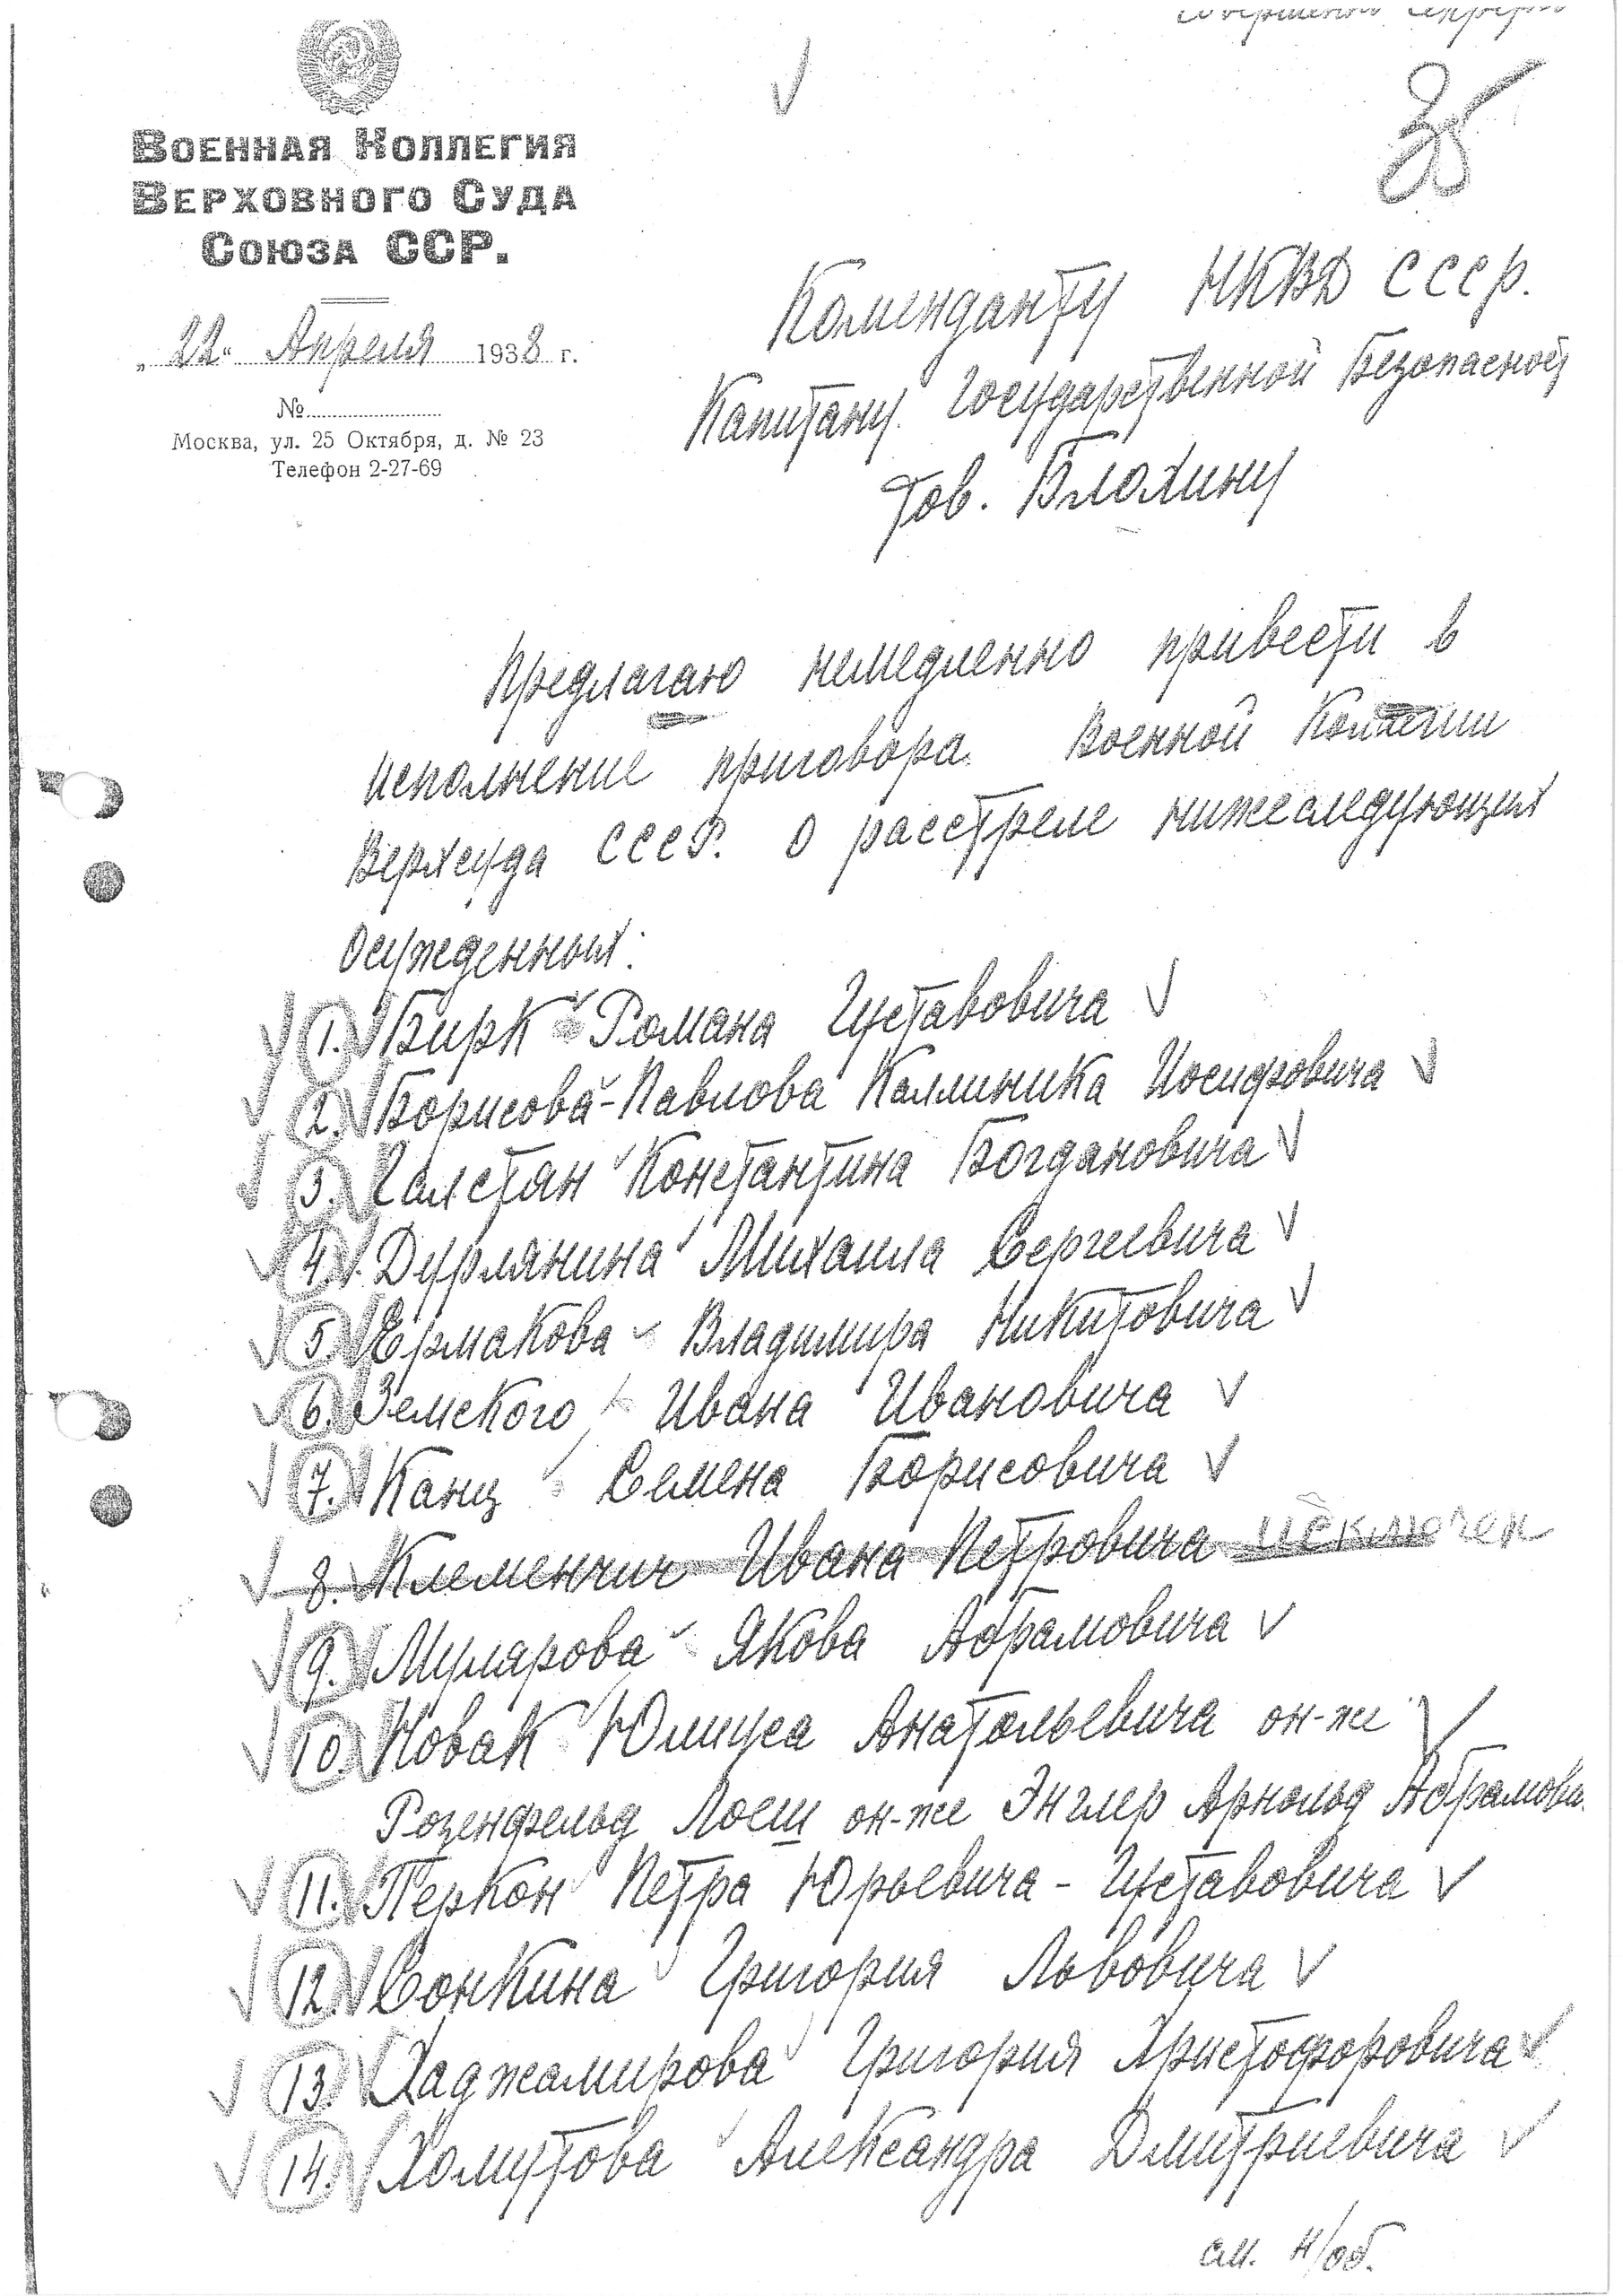 Совершенно секретно
35
ВОЕННАЯ КОЛЛЕГИЯ
ВЕРХОВНОГО СУДА
СОЮЗА ССР.
„22“ Апреля 1938 г.
№
Москва, ул. 25 Октября, д. № 23
Телефон 2-27-69
Коменданту НКВД СССР.
Капитану Государственной Безопасности
тов. Блохину
Предлагаю немедленно привести в
исполнение приговора Военной Коллегии
Верхсуда СССР. о расстреле нижеследующих
осужденных:
1. Бирк Романа Густавовича
2. Борисова-Павлова Каллиника Иосифовича
3. Галстян Константина Богдановича
4. Дурлянина Михаила Сергеевича
5. Ермакова Владимира Никитовича
6. Земского Ивана Ивановича
7. Канц Семена Борисовича
8. Клеменчич Ивана Петровича исключен
9. Мулярова Якова Абрамовича
10. Новак Юлиуса Анатольевича он-же
Розенфельд Лоеш он-же Энглер Арнольд Абрамови
11. Перкон Петра Юрьевича - Густавовича
12. Сонкина Григория Львовича
13. Хаджамирова Григория Христофоровича
14. Хомутова Александра Дмитриевича
см. н/об.